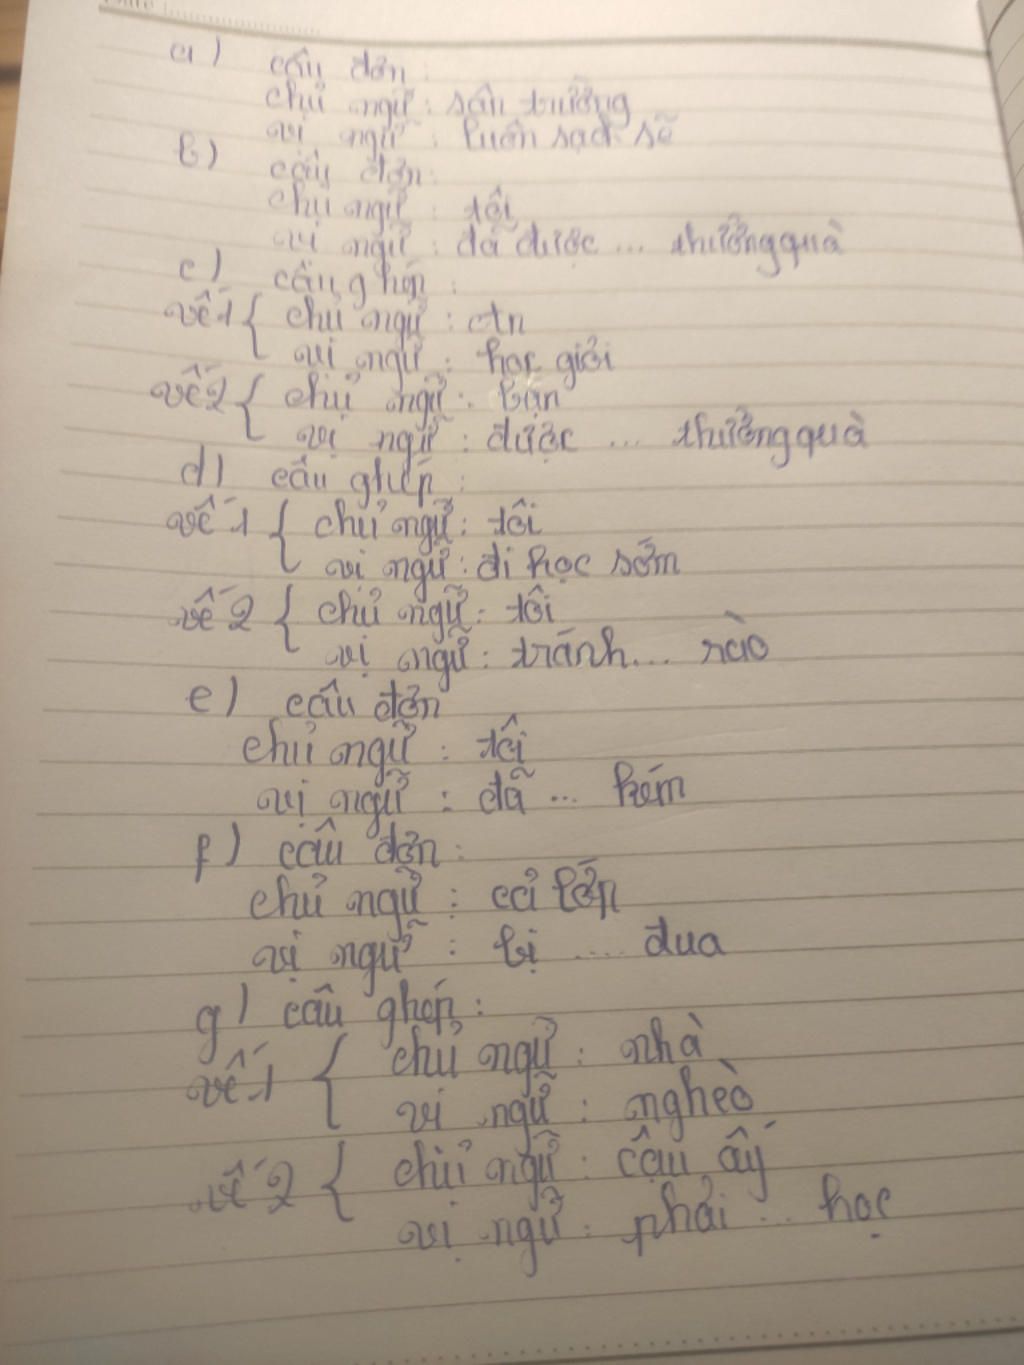 a) câu đơn:
chủ ngữ: sân trường
vị ngữ: luôn sạch sẽ
b) câu đơn:
chủ ngữ: tôi
vị ngữ: đã được ... thưởng quà
c) câu ghép:
vế 1 { chủ ngữ: An
vị ngữ: học giỏi
vế 2 { chủ ngữ: bạn
vị ngữ: được ... thưởng quà
d) câu ghép:
vế 1 { chủ ngữ: tôi
vị ngữ: đi học sớm
vế 2 { chủ ngữ: tôi
vị ngữ: tránh... rào
e) câu đơn
chủ ngữ: tôi
vị ngữ: đã ... kém
f) câu đơn:
chủ ngữ: cả lớp
vị ngữ: bị .... đua
g) câu ghép:
vế 1 { chủ ngữ: nhà
vị ngữ: nghèo
vế 2 { chủ ngữ: cậu ấy
vị ngữ: phải ... học